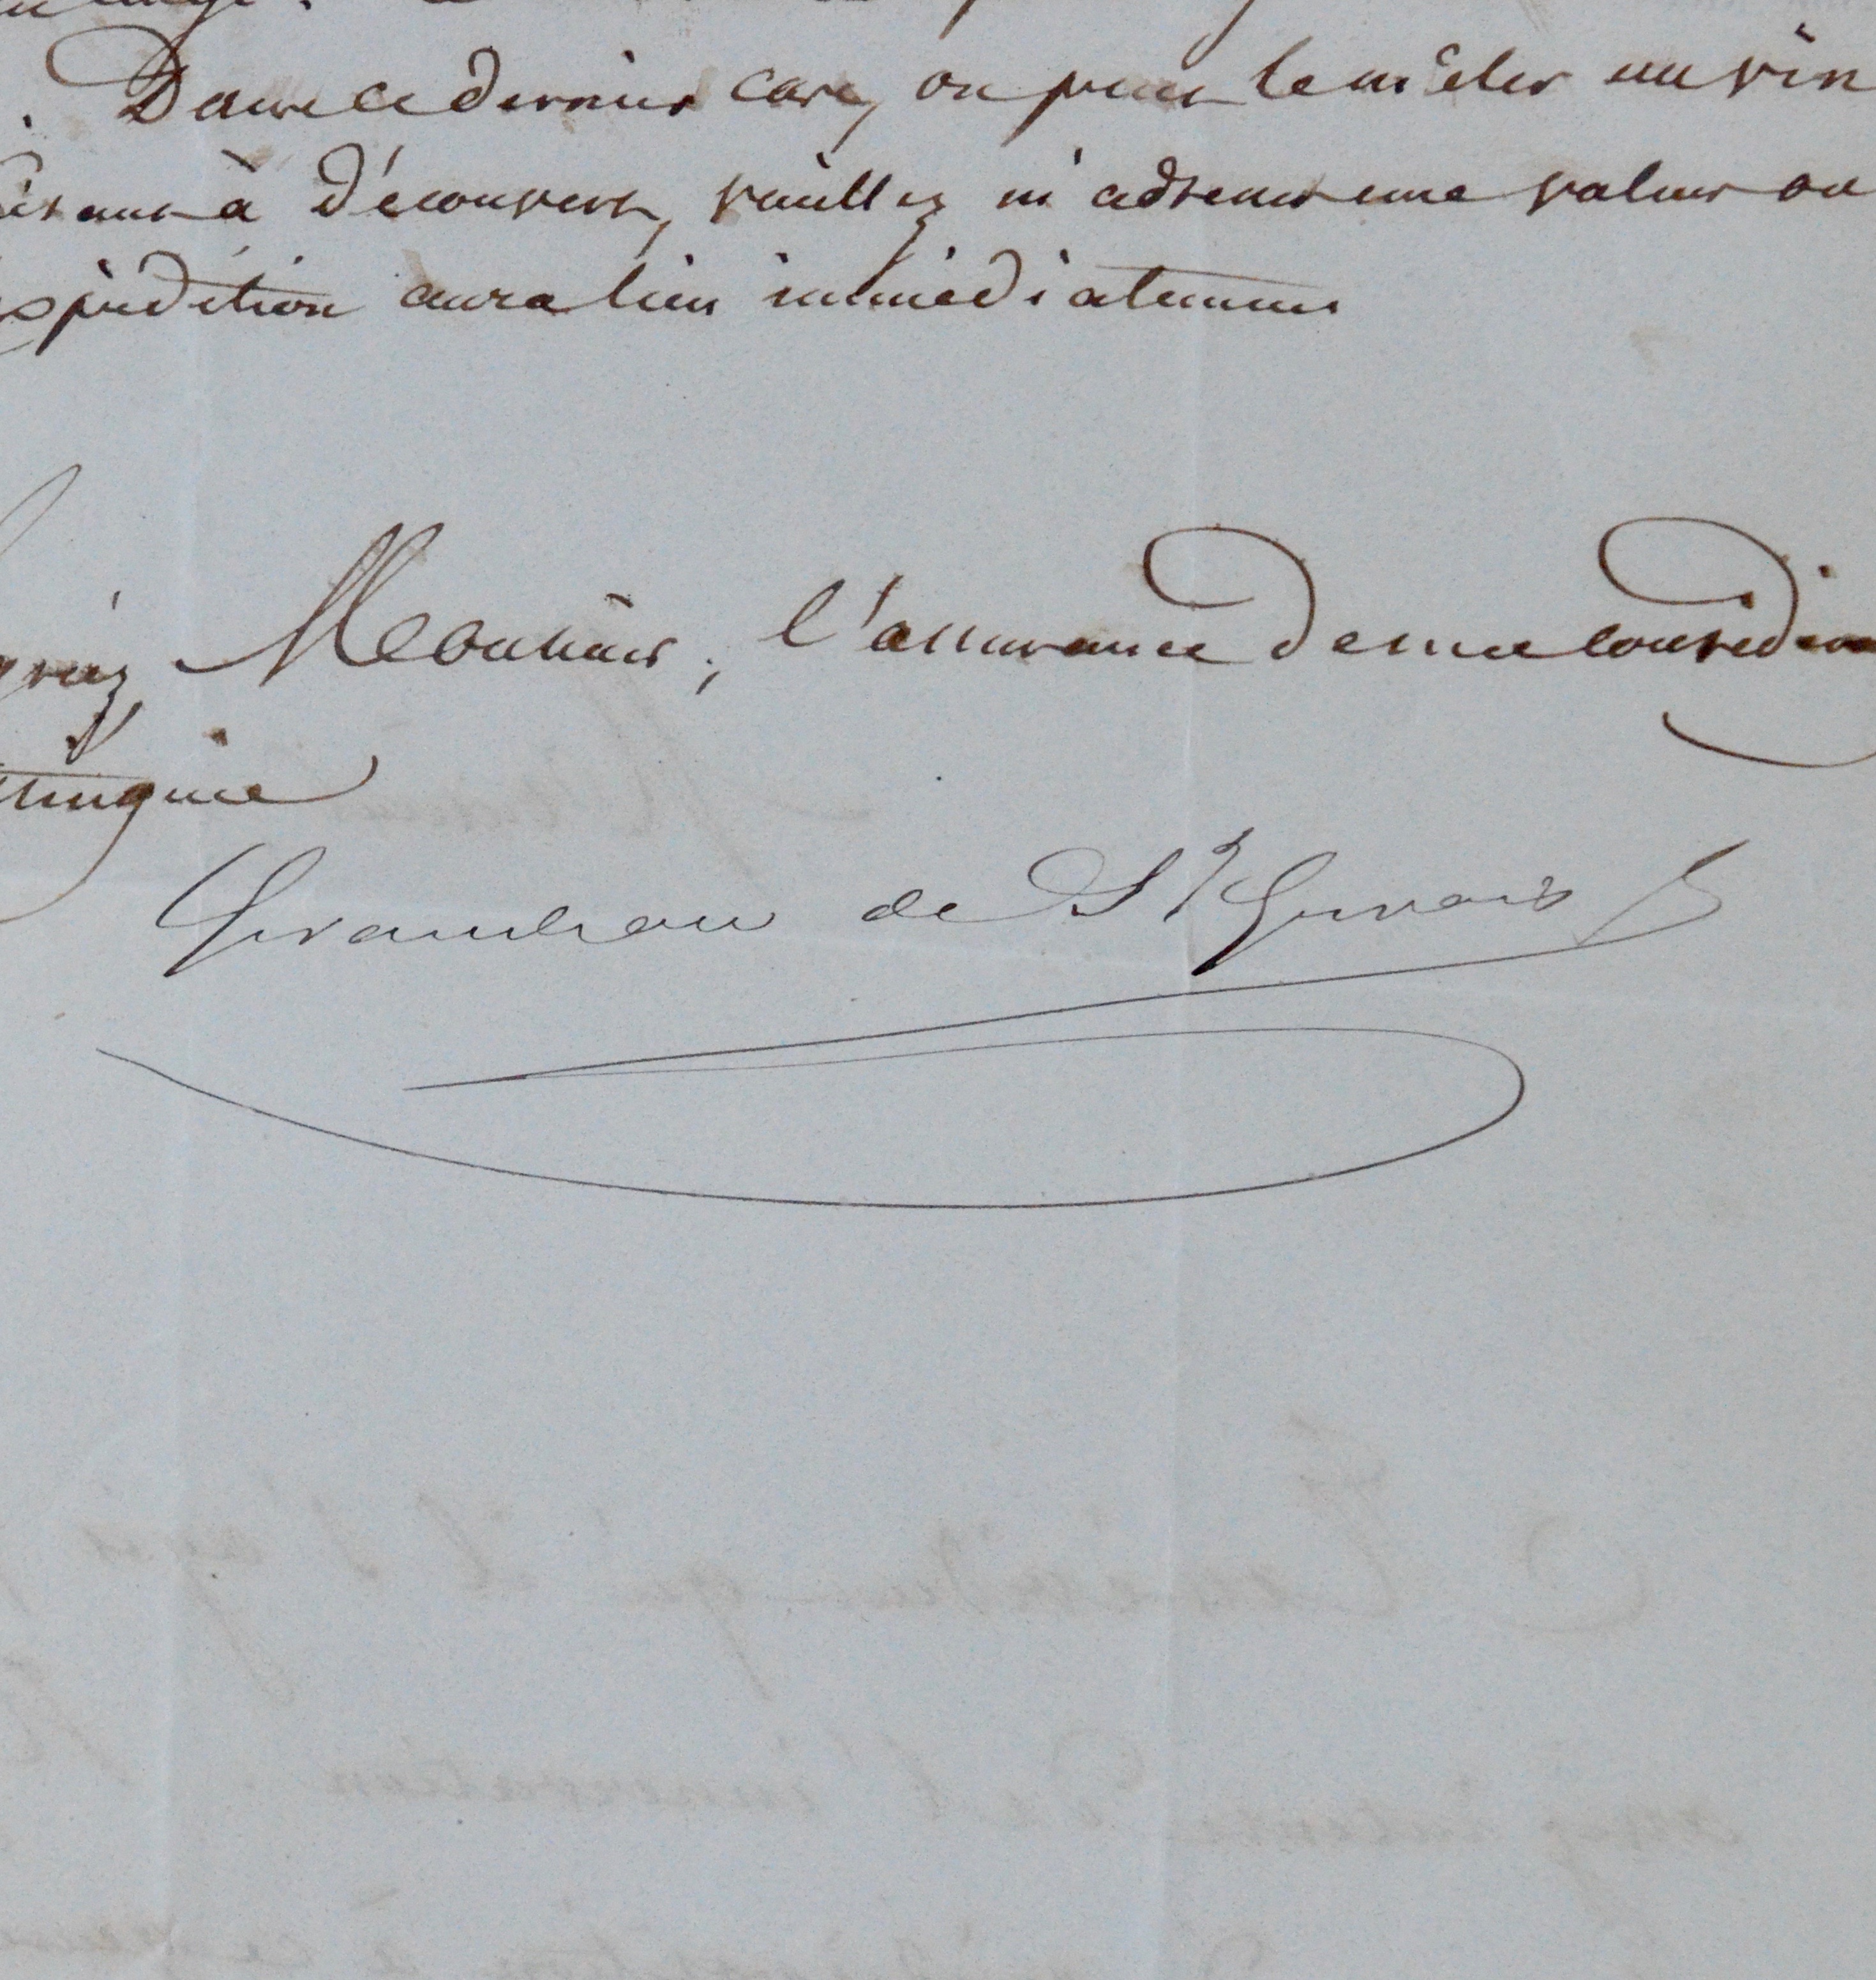 . Dans ce dernier cas, on peut le mêler au vin
à découvert, veuillez m'adresser une valeur ou
expédition aura lieu immédiatement
Monsieur, l'assurance de ma considéra
tinguée
Giraudeau de St Gervais